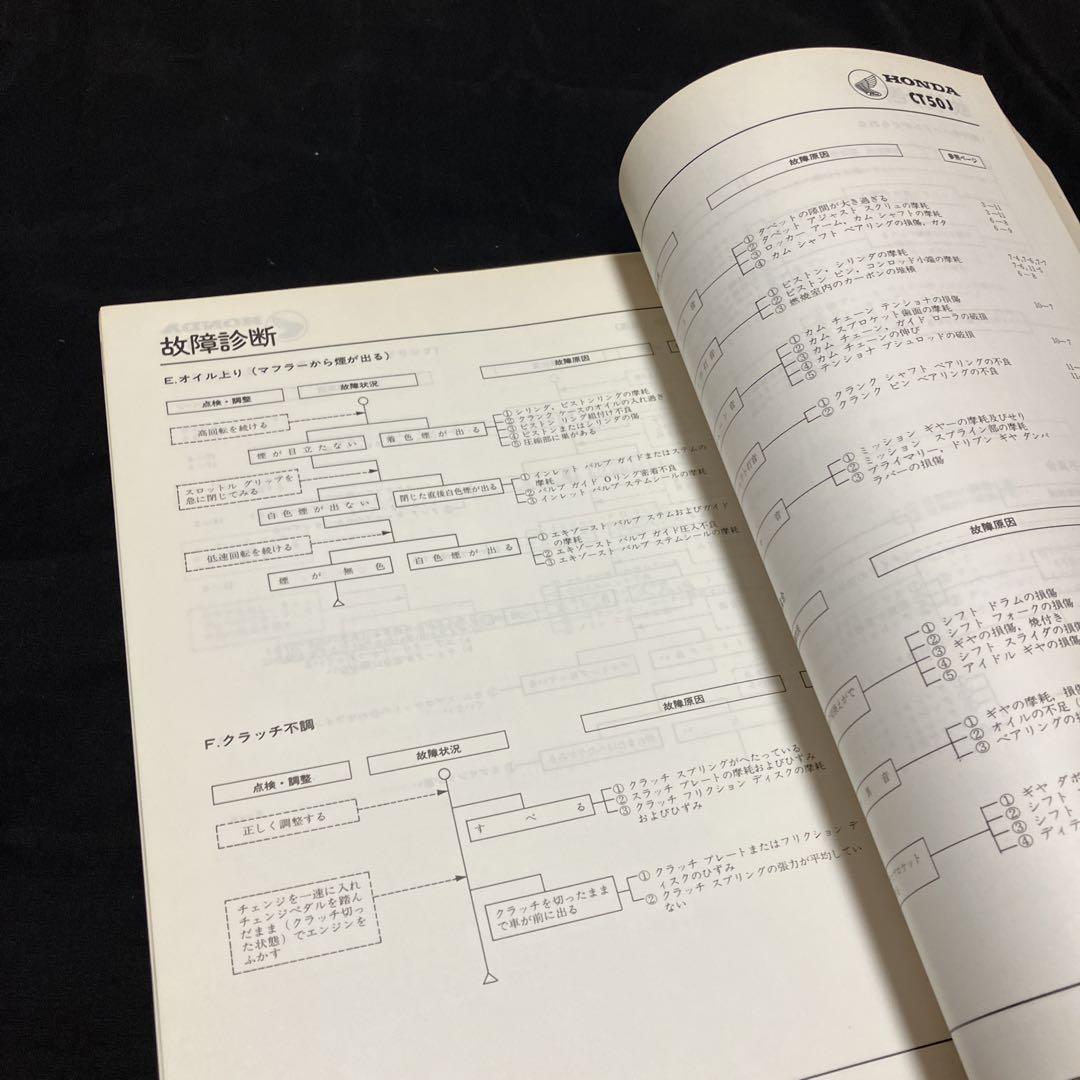 故障診断
E.オイル上り(マフラーから煙が出る)
点検・調整
故障状況
故障原因
高回転を続ける
煙が目立たない
着色煙が出る
① シリング、ピストンリングの摩耗
② クラック ケースのオイルの入れ過ぎ
③ ピストン リング組付け不良
④ ピストンまたはシリンダの傷
⑤ 圧縮部に巣がある
スロットル グリップを
急に閉じてみる
白色煙が出ない
閉じた直後白色煙が出る
① インレット バルブ ガイドまたはステムの
摩耗
② バルブ ガイド Oリング密着不良
③ インレット バルブ ステムシールの摩耗
低速回転を続ける
煙が無色
白色煙が出る
① エキゾースト バルブ ステムおよびガイド
の摩耗
② エキゾースト バルブ ガイド圧入不良
③ エキゾースト バルブ ステムシールの摩耗
F.クラッチ不調
点検・調整
故障状況
故障原因
正しく調整する
すべる
① クラッチ スプリングがへたっている
② スラッチ プレートの摩耗およびひずみ
③ クラッチ フリクション ディスクの摩耗
およびひずみ
チェンジを一速に入れ
チェンジペダルを踏ん
だまま(クラッチ切っ
た状態)でエンジンを
ふかす
クラッチを切ったまま
で車が前に出る
① クラッチ プレートまたはフリクション デ
ィスクのひずみ
② クラッチ スプリングの張力が平均してい
ない
HONDA
CT50J
故障原因
参照ページ
① タペットの隙間が大き過ぎる
② タペット アジャスト スクリュの摩耗 3-11
③ ロッカー アーム、カム シャフトの摩耗 3-11
④ カム シャフト ベアリングの損傷、ガタ 6-8
6-9
音
① ピストン、シリングの摩耗 7-4,7-6,7-7
② ピストン ピン、コンロッド小端の摩耗 7-6,11-5
③ 燃焼室内のカーボンの堆積 6-8
音
① カム チェーン テンショナの損傷
② カム スプロケット歯面の摩耗 10-7
③ カム チェーン、ガイド ローラの破損
④ カム チェーンの伸び
⑤ テンショナ プシュロッドの破損 10-7
音
① クランク シャフト ベアリングの不良
② クランク ピン ベアリングの不良
打音
① ミッション ギヤーの摩耗及びせり
② ミッション スプライン部の摩耗
③ プライマリー、ドリブン ギヤ ダンパ
ラバーの損傷
音
故障原因
① シフト ドラムの損傷
② シフト フォークの損傷
③ ギヤの損傷、焼付き
④ シフト スライダの損傷
⑤ アイドル ギヤの損傷
① ギヤの摩耗、損傷
② オイルの不足
③ ベアリングの
異音
① ギヤ ダボ
② シフト
③ シフト
④ ディテ